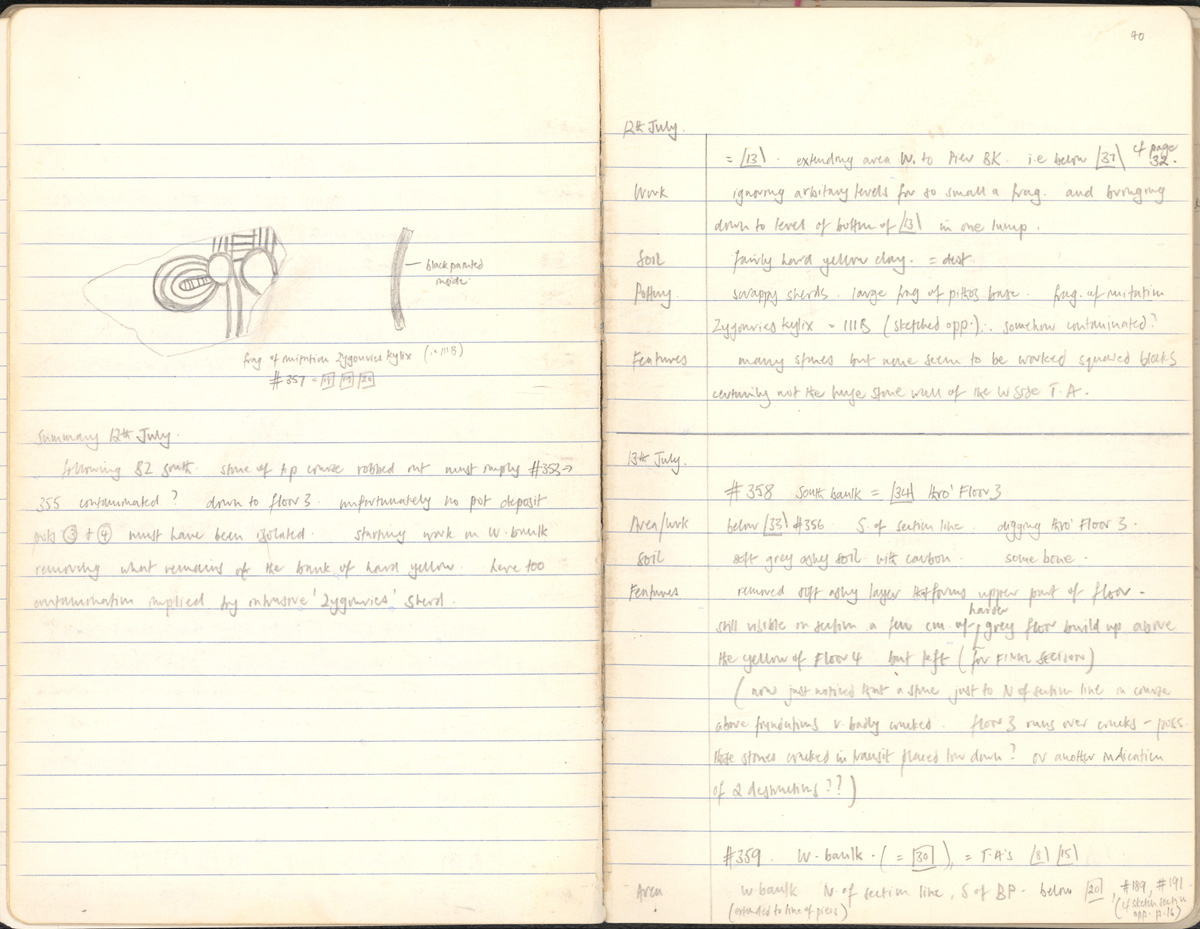 black painted
inside.
frag of imitation Zygouries kylix (i.e. 111B)
#357 = 17 19 20
Summary 12th July.
following B2 south. stone of top course robbed out must imply #353→
355 contaminated? down to floor 3. unfortunately no pot deposit
pots ③ + ④ must have been isolated. starting work in W. baulk
removing what remains of the bank of hard yellow. here too
contamination implied by intrusive 'Zygouries' sherd.
40
12th July.
= /13\ . extending area W. to Prev BK. i.e. below /37\ cf page
32.
Work ignoring arbitrary levels for so small a frag. and bringing
down to level of bottom of /13\ in one lump.
Soil fairly hard yellow clay. = dest
Pottery scrappy sherds. large frag of pithos base. frag. of imitation
Zygouries kylix = 111B (sketched opp.) ∴ somehow contaminated?
Features many stones but none seem to be worked squared blocks
certainly not the huge stone wall of the W side T.A.
13th July.
#358 South baulk = /34\ thro' Floor 3
Area/work below /33\ #356 S. of section line. digging thro' Floor 3.
Soil soft grey ashy soil with carbon. some bone.
Features removed soft ashy layer that forms upper part of floor.
still visible in section a few cm. of harder grey floor build up above
the yellow of Floor 4 but left (for FINAL SECTION)
(now just noticed that a stone just to N of section line in course
above foundations v. badly cracked. floor 3 runs over cracks – poss.
these stones cracked in transit placed low down? or another indication
of 2 destructions??)
#359. W. baulk. (= 30), = T.A's /8\ /15\
Area W baulk N. of section line, S of BP. below 20, #189, #191
(extended to line of piers) (cf sketch section
opp. p. 16)